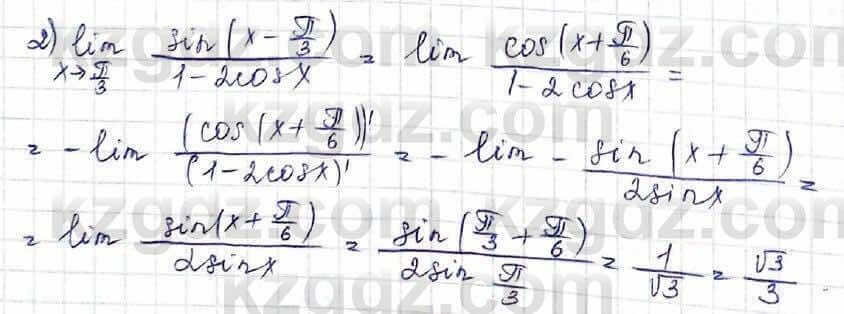 2) lim x→π/3 sin(x − π/3) / (1 − 2cosx) = lim cos(x + π/6) / (1 − 2cosx) =
= − lim (cos(x + π/6))' / (1 − 2cosx)' = − lim − sin(x + π/6) / 2sinx =
= lim sin(x + π/6) / 2sinx = sin(π/3 + π/6) / 2sin π/3 = 1/√3 = √3/3 .
kzgdz.com